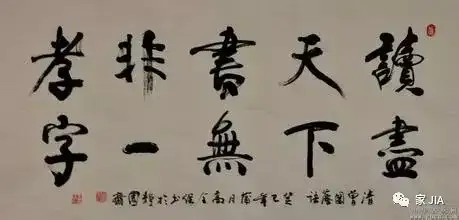 讀盡
天下
書無
非一
孝字
清曾國藩語
家JIA